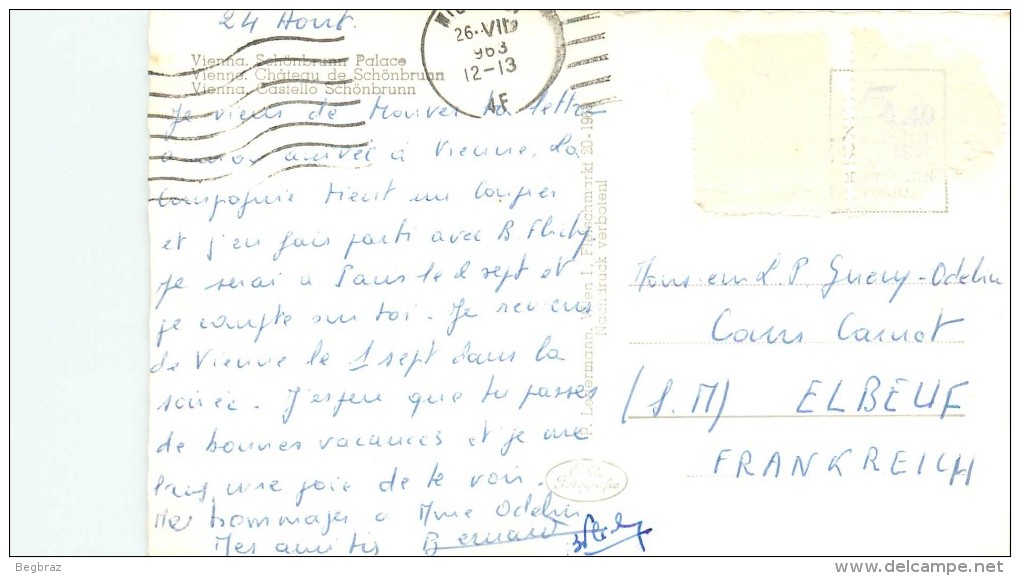 24 Aout.
Vienna. Schönbrunn Palace
Vienne. Château de Schönbrunn
Vienna. Castello Schönbrunn
26.VIII
963
12-13
4F
Je viens de trouver ta lettre
a mon arrivée à Vienne. La
Compagnie tient un Congrès
et j'en fais parti avec B. Flichy
Je serai à Paris le 2 sept et
je compte sur toi. Je reviens
de Vienne le 1 sept dans la
soirée. J'espère que tu passes
de bonnes vacances et je me
fais une joie de te voir.
Mes hommages a Mme Odelin
Mes amitiés Bernard
P. Ledermann, Wien I, Fleischmarkt 20
Nachdruck verboten!
Monsieur L. P. Guery-Odelin
Cours Carnot
(S.M) ELBEUF
FRANKREICH
Begbraz
delcampe.net